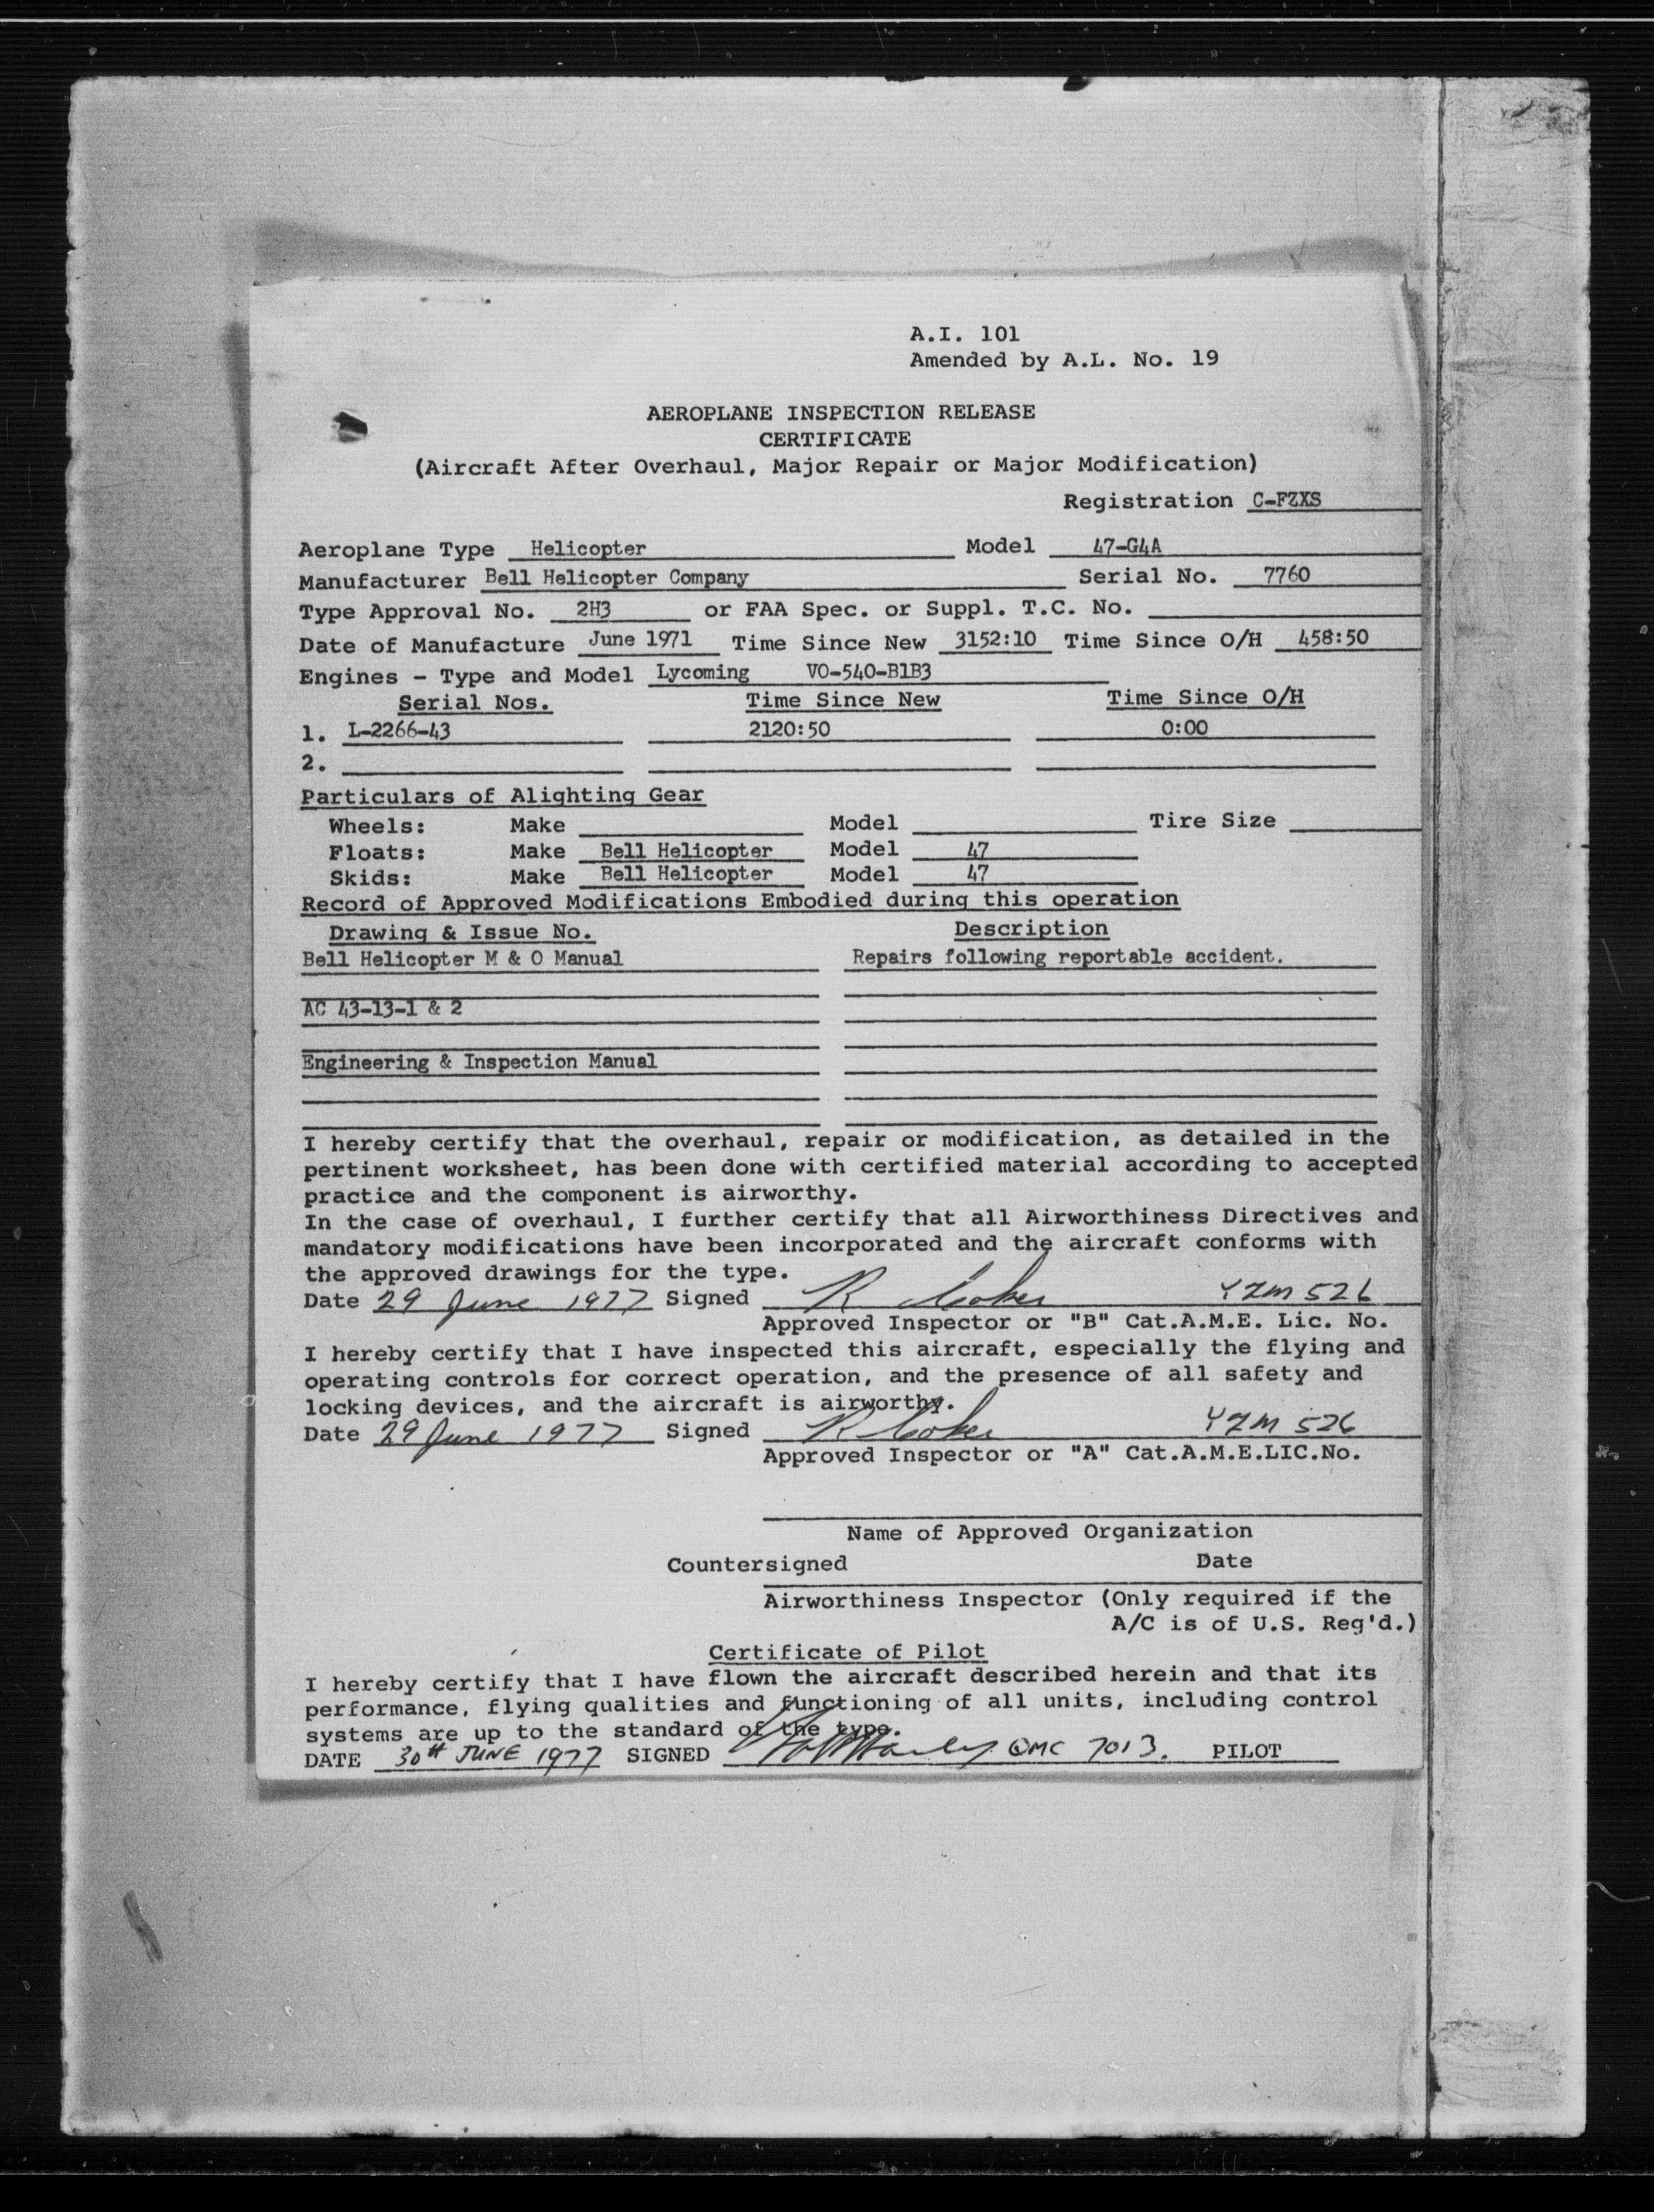 A.I. 101
Amended by A.L. No. 19
AEROPLANE INSPECTION RELEASE
CERTIFICATE
(Aircraft After Overhaul, Major Repair or Major Modification)
Registration C-FZXS
Aeroplane Type Helicopter Model 47-G4A
Manufacturer Bell Helicopter Company Serial No. 7760
Type Approval No. 2H3 or FAA Spec. or Suppl. T.C. No.
Date of Manufacture June 1971 Time Since New 3152:10 Time Since O/H 458:50
Engines - Type and Model Lycoming VO-540-B1B3
Serial Nos. Time Since New Time Since O/H
1. L-2266-43 2120:50 0:00
2.
Particulars of Alighting Gear
Wheels: Make Model Tire Size
Floats: Make Bell Helicopter Model 47
Skids: Make Bell Helicopter Model 47
Record of Approved Modifications Embodied during this operation
Drawing & Issue No. Description
Bell Helicopter M & O Manual Repairs following reportable accident.
AC 43-13-1 & 2
Engineering & Inspection Manual
I hereby certify that the overhaul, repair or modification, as detailed in the
pertinent worksheet, has been done with certified material according to accepted
practice and the component is airworthy.
In the case of overhaul, I further certify that all Airworthiness Directives and
mandatory modifications have been incorporated and the aircraft conforms with
the approved drawings for the type.
Date 29 June 1977 Signed R YZM 526
Approved Inspector or "B" Cat.A.M.E. Lic. No.
I hereby certify that I have inspected this aircraft, especially the flying and
operating controls for correct operation, and the presence of all safety and
locking devices, and the aircraft is airworthy.
Date 29 June 1977 Signed R YZM 526
Approved Inspector or "A" Cat.A.M.E.LIC.No.
Name of Approved Organization
Countersigned Date
Airworthiness Inspector (Only required if the
A/C is of U.S. Reg'd.)
Certificate of Pilot
I hereby certify that I have flown the aircraft described herein and that its
performance, flying qualities and functioning of all units, including control
systems are up to the standard of the type.
DATE 30TH JUNE 1977 SIGNED QMC 7013. PILOT